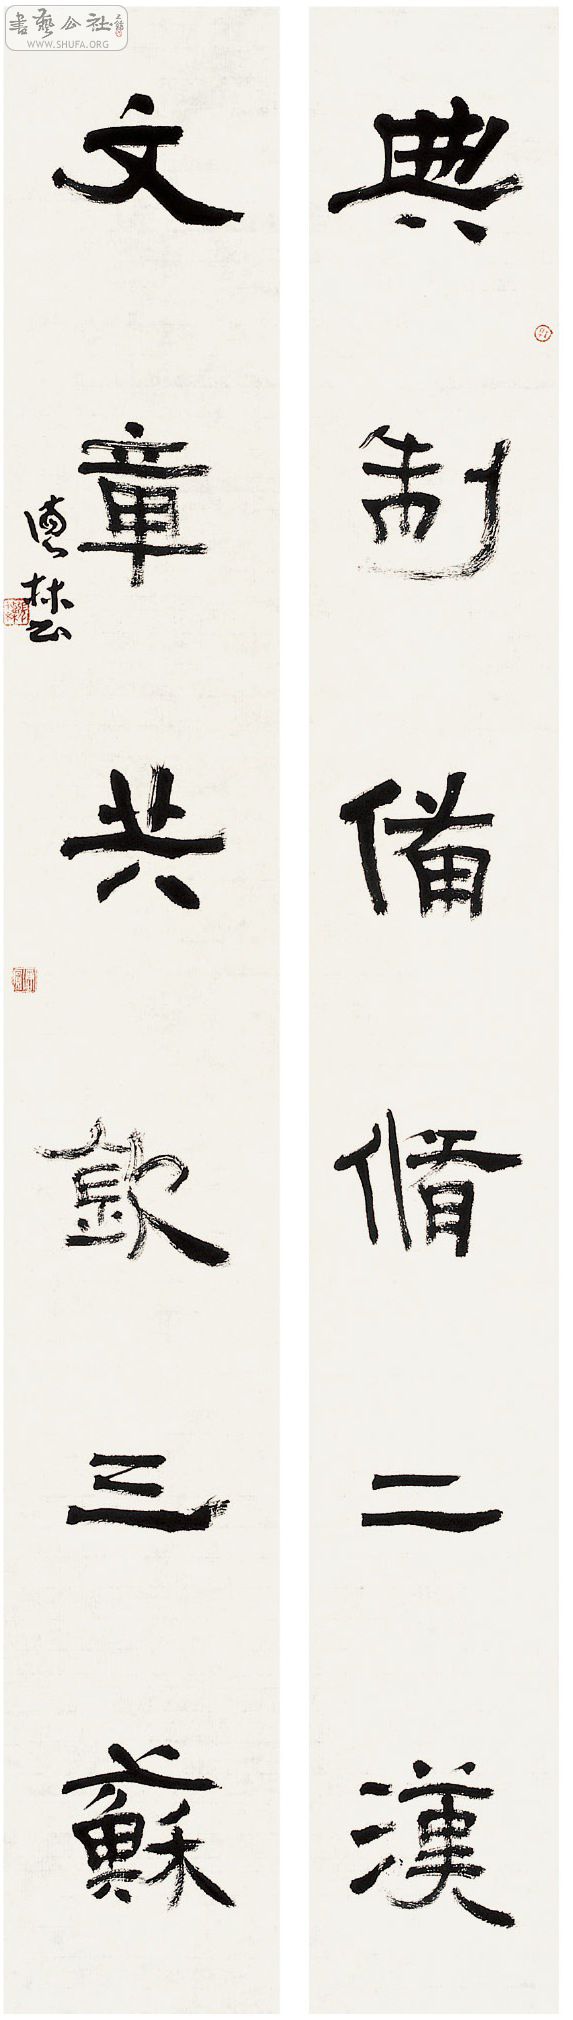 典制備脩二漢
文章共歐三蘇
德林書
書藝公社
WWW.SHUFA.ORG